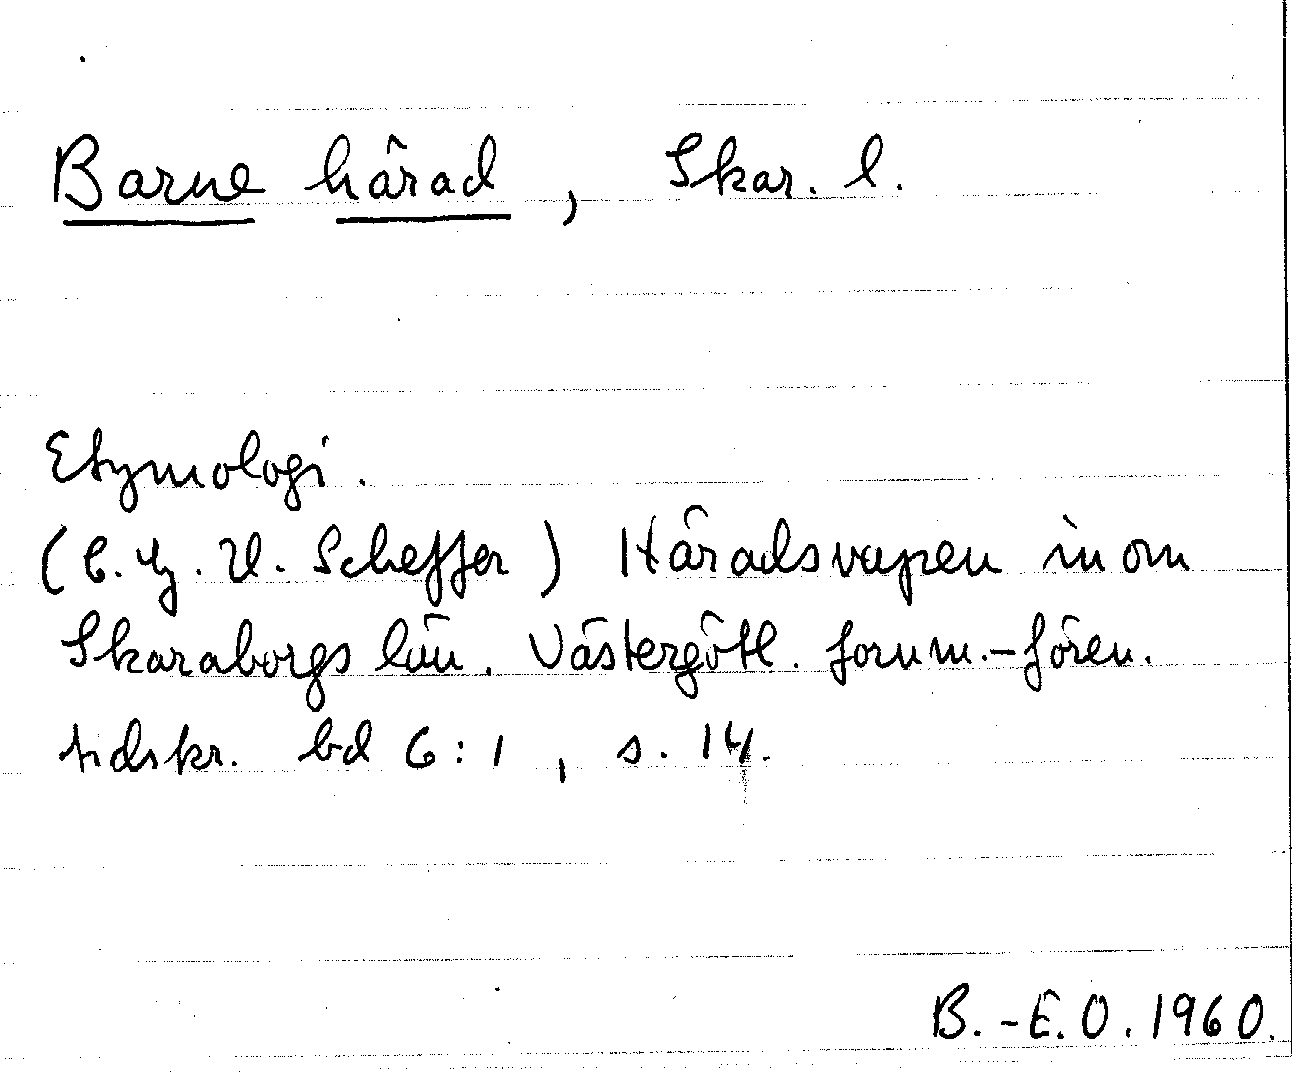 Barne härad, Skar. l.
Etymologi.
(C. G. U. Scheffer) Häradsvapen inom
Skaraborgs län. Västergötl. fornm.-fören.
tidskr. bd 6:1, s. 14.
B.-E.O. 1960.